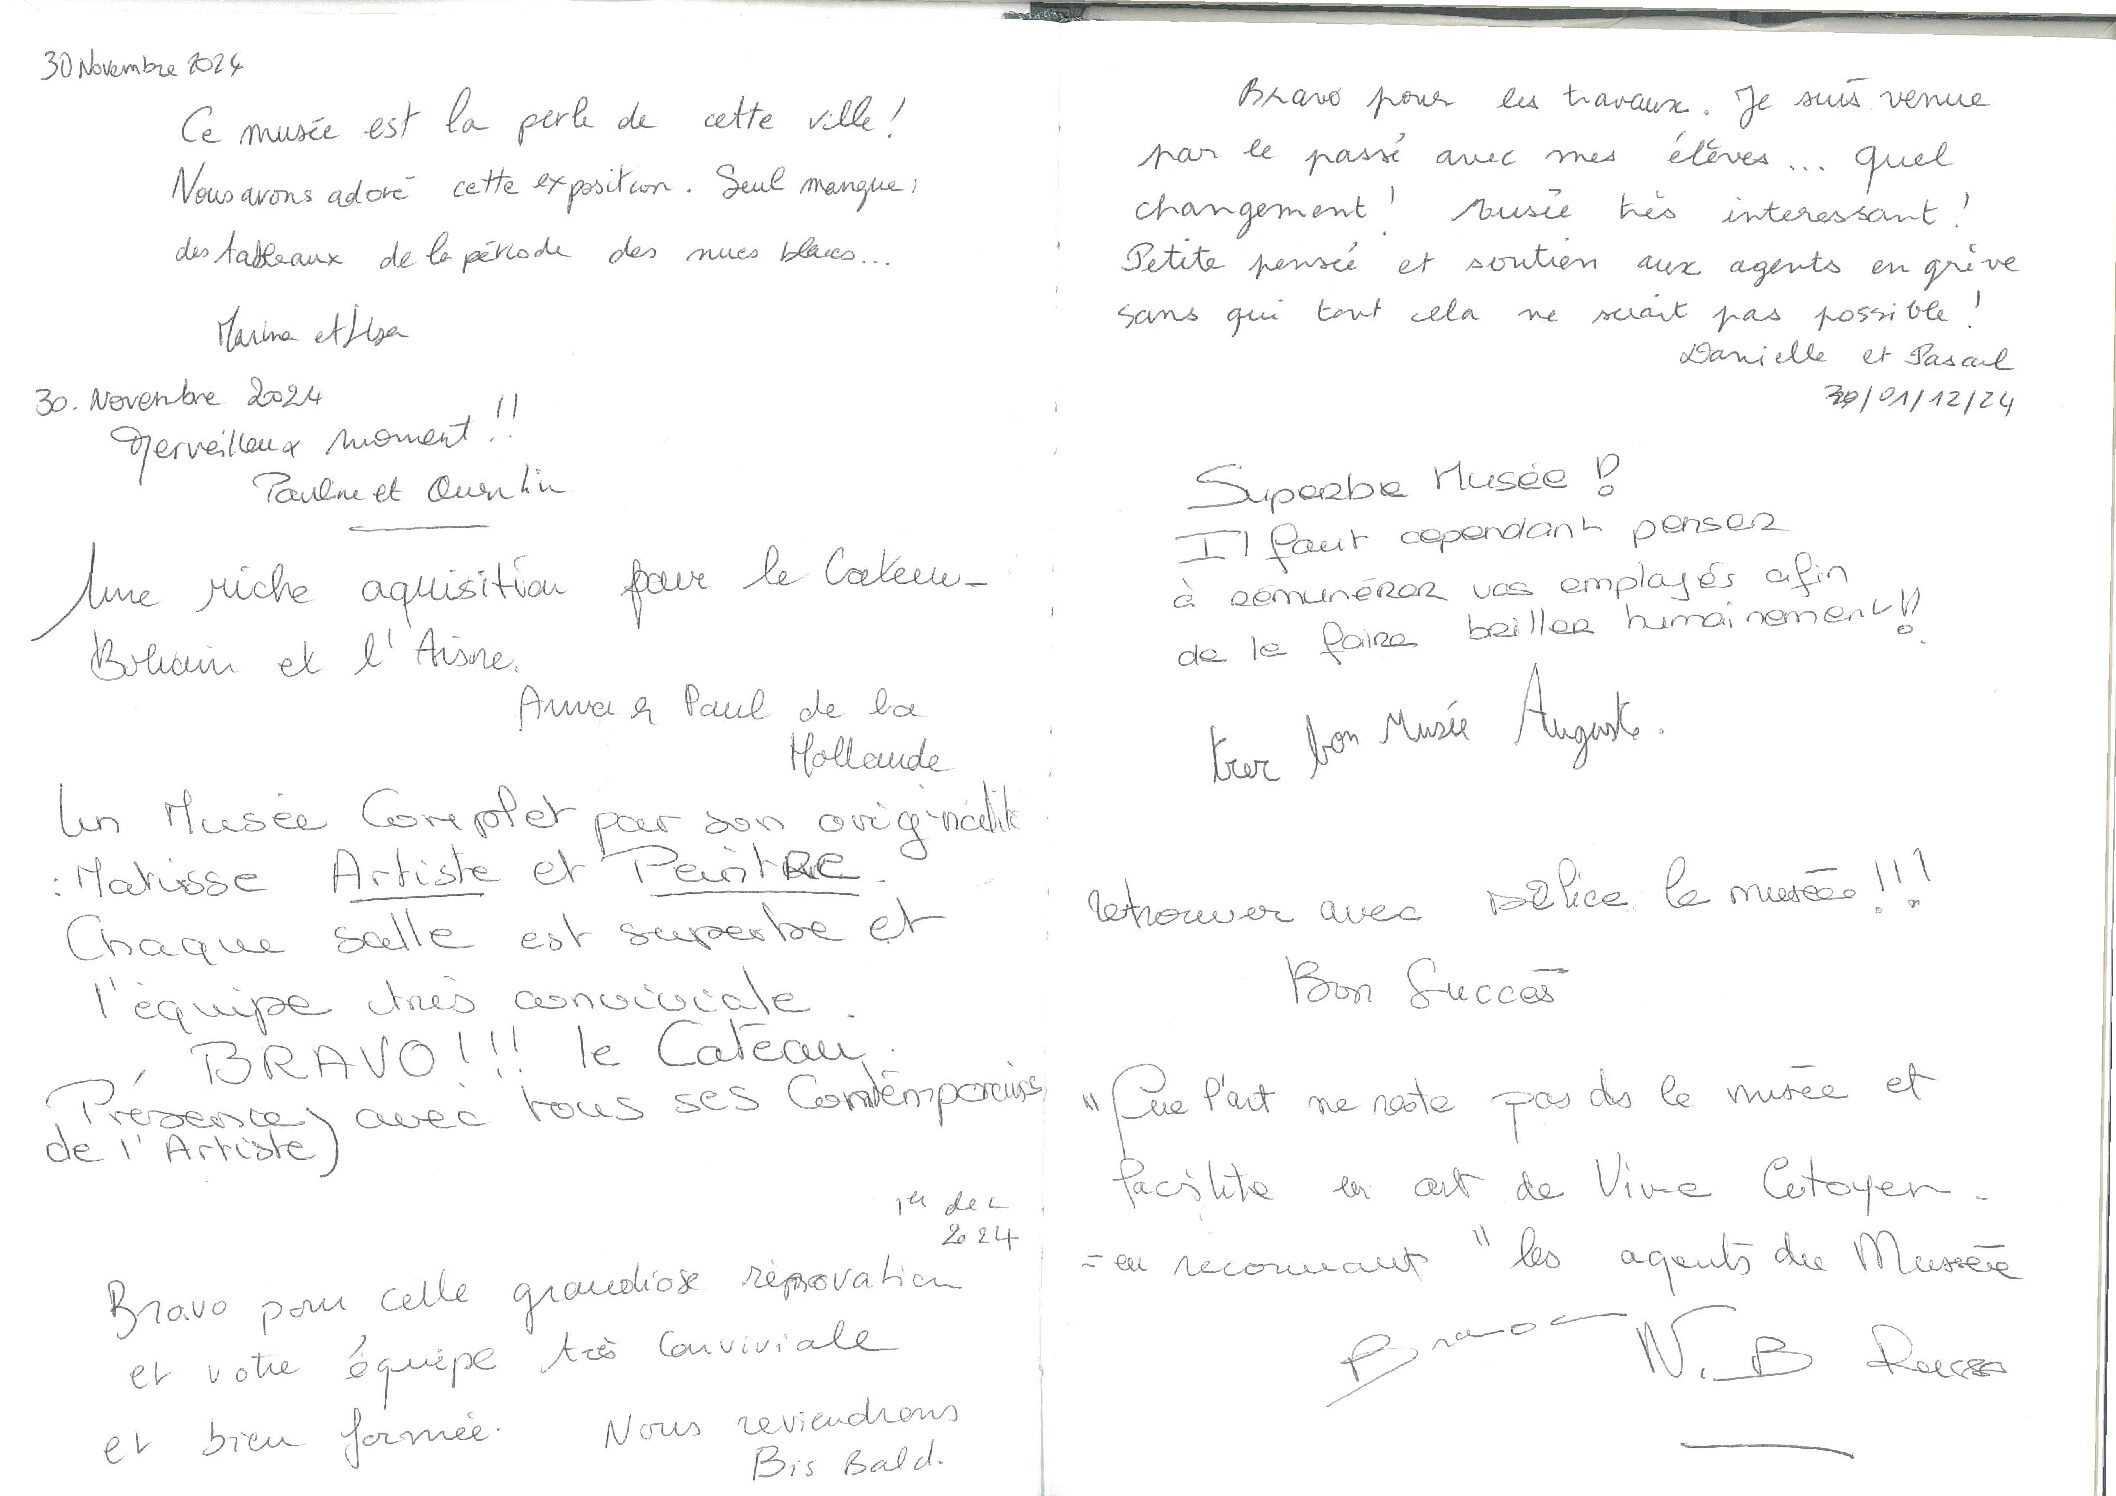 30 Novembre 2024
Ce musée est la perle de cette ville !
Nous avons adoré cette exposition. Seul manque :
des tableaux de la période des nues bleues...
Marina et Lisa
30. Novembre 2024
Merveilleux moment !!
Pauline et Quentin
Une riche aquisition pour le Cateau-
Bohain et l'Aisne.
Anna & Paul de la
Hollande
Un Musée Complet par son originalité
: Matisse Artiste et Peintre.
Chaque salle est superbe et
l'équipe très conviviale.
BRAVO !!! le Cateau.
Présence) avec tous ses Contemporains
de l'Artiste)
1er dec
2024
Bravo pour celle grandiose rénovation
et votre équipe très conviviale
et bien formée. Nous reviendrons
Bis Bald.
Bravo pour les travaux. Je suis venue
par le passé avec mes élèves... quel
changement ! Musée très interessant !
Petite pensée et soutien aux agents en grève
sans qui tout cela ne serait pas possible !
Danielle et Pascal
01/12/24
Superbe Musée !
Il faut cependant penser
à rémunérer vos employés afin
de le faire briller humainement !!
trer bon Musée Auguste.
retrouver avec Délice le musée !!!
Bon Succès
"Que l'art ne reste pas ds le musée et
facilite un art de Vivre Citoyen.
= en reconnaiant " les agents du Musée
Bravo N. B